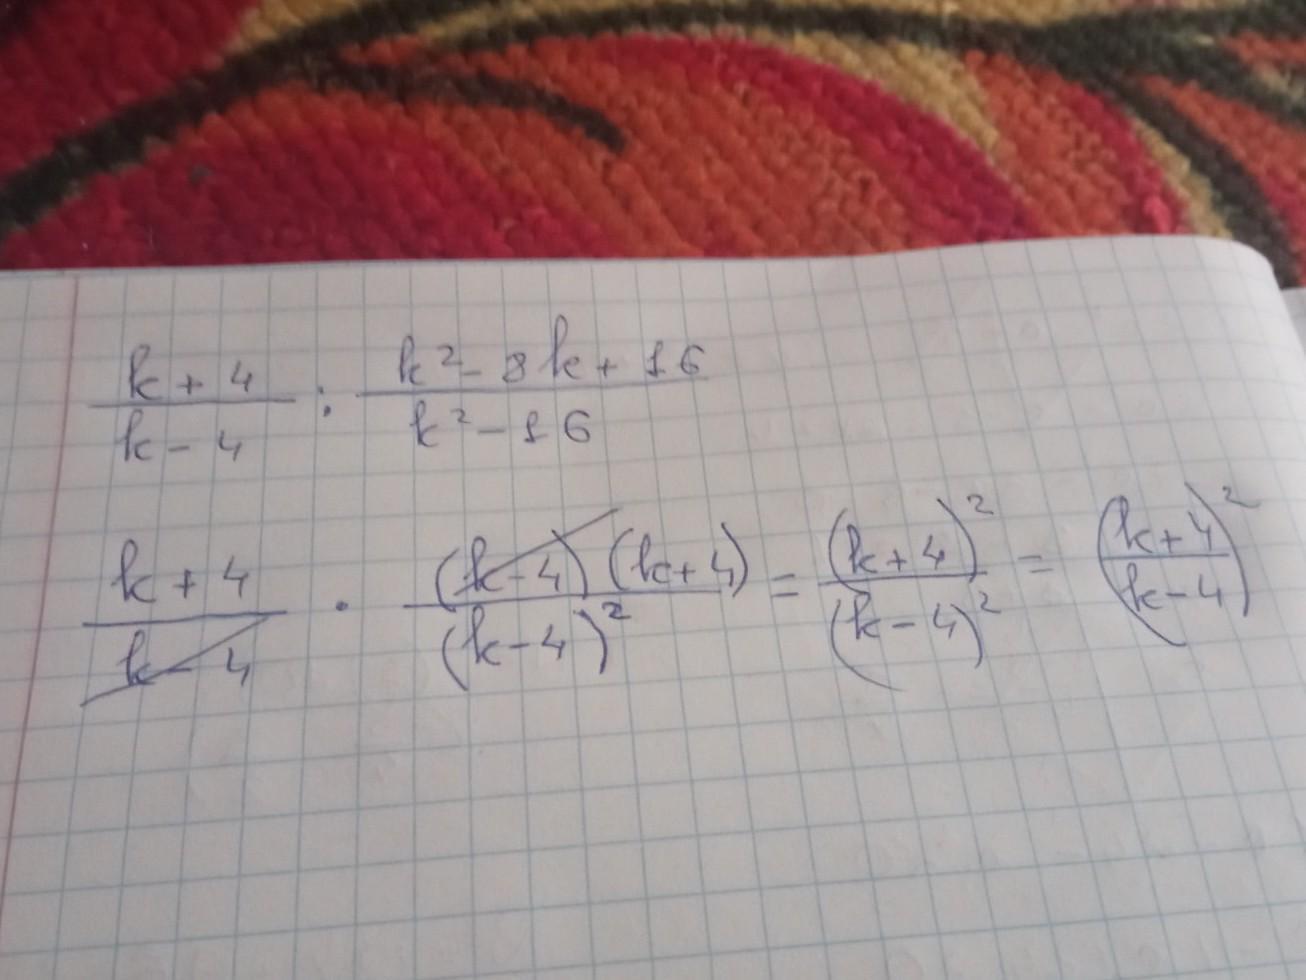 (k + 4)/(k - 4) : (k² - 8k + 16)/(k² - 16)
(k + 4)/(k - 4) · ((k - 4)(k + 4))/(k - 4)² = (k + 4)²/(k - 4)² = ((k + 4)/(k - 4))²